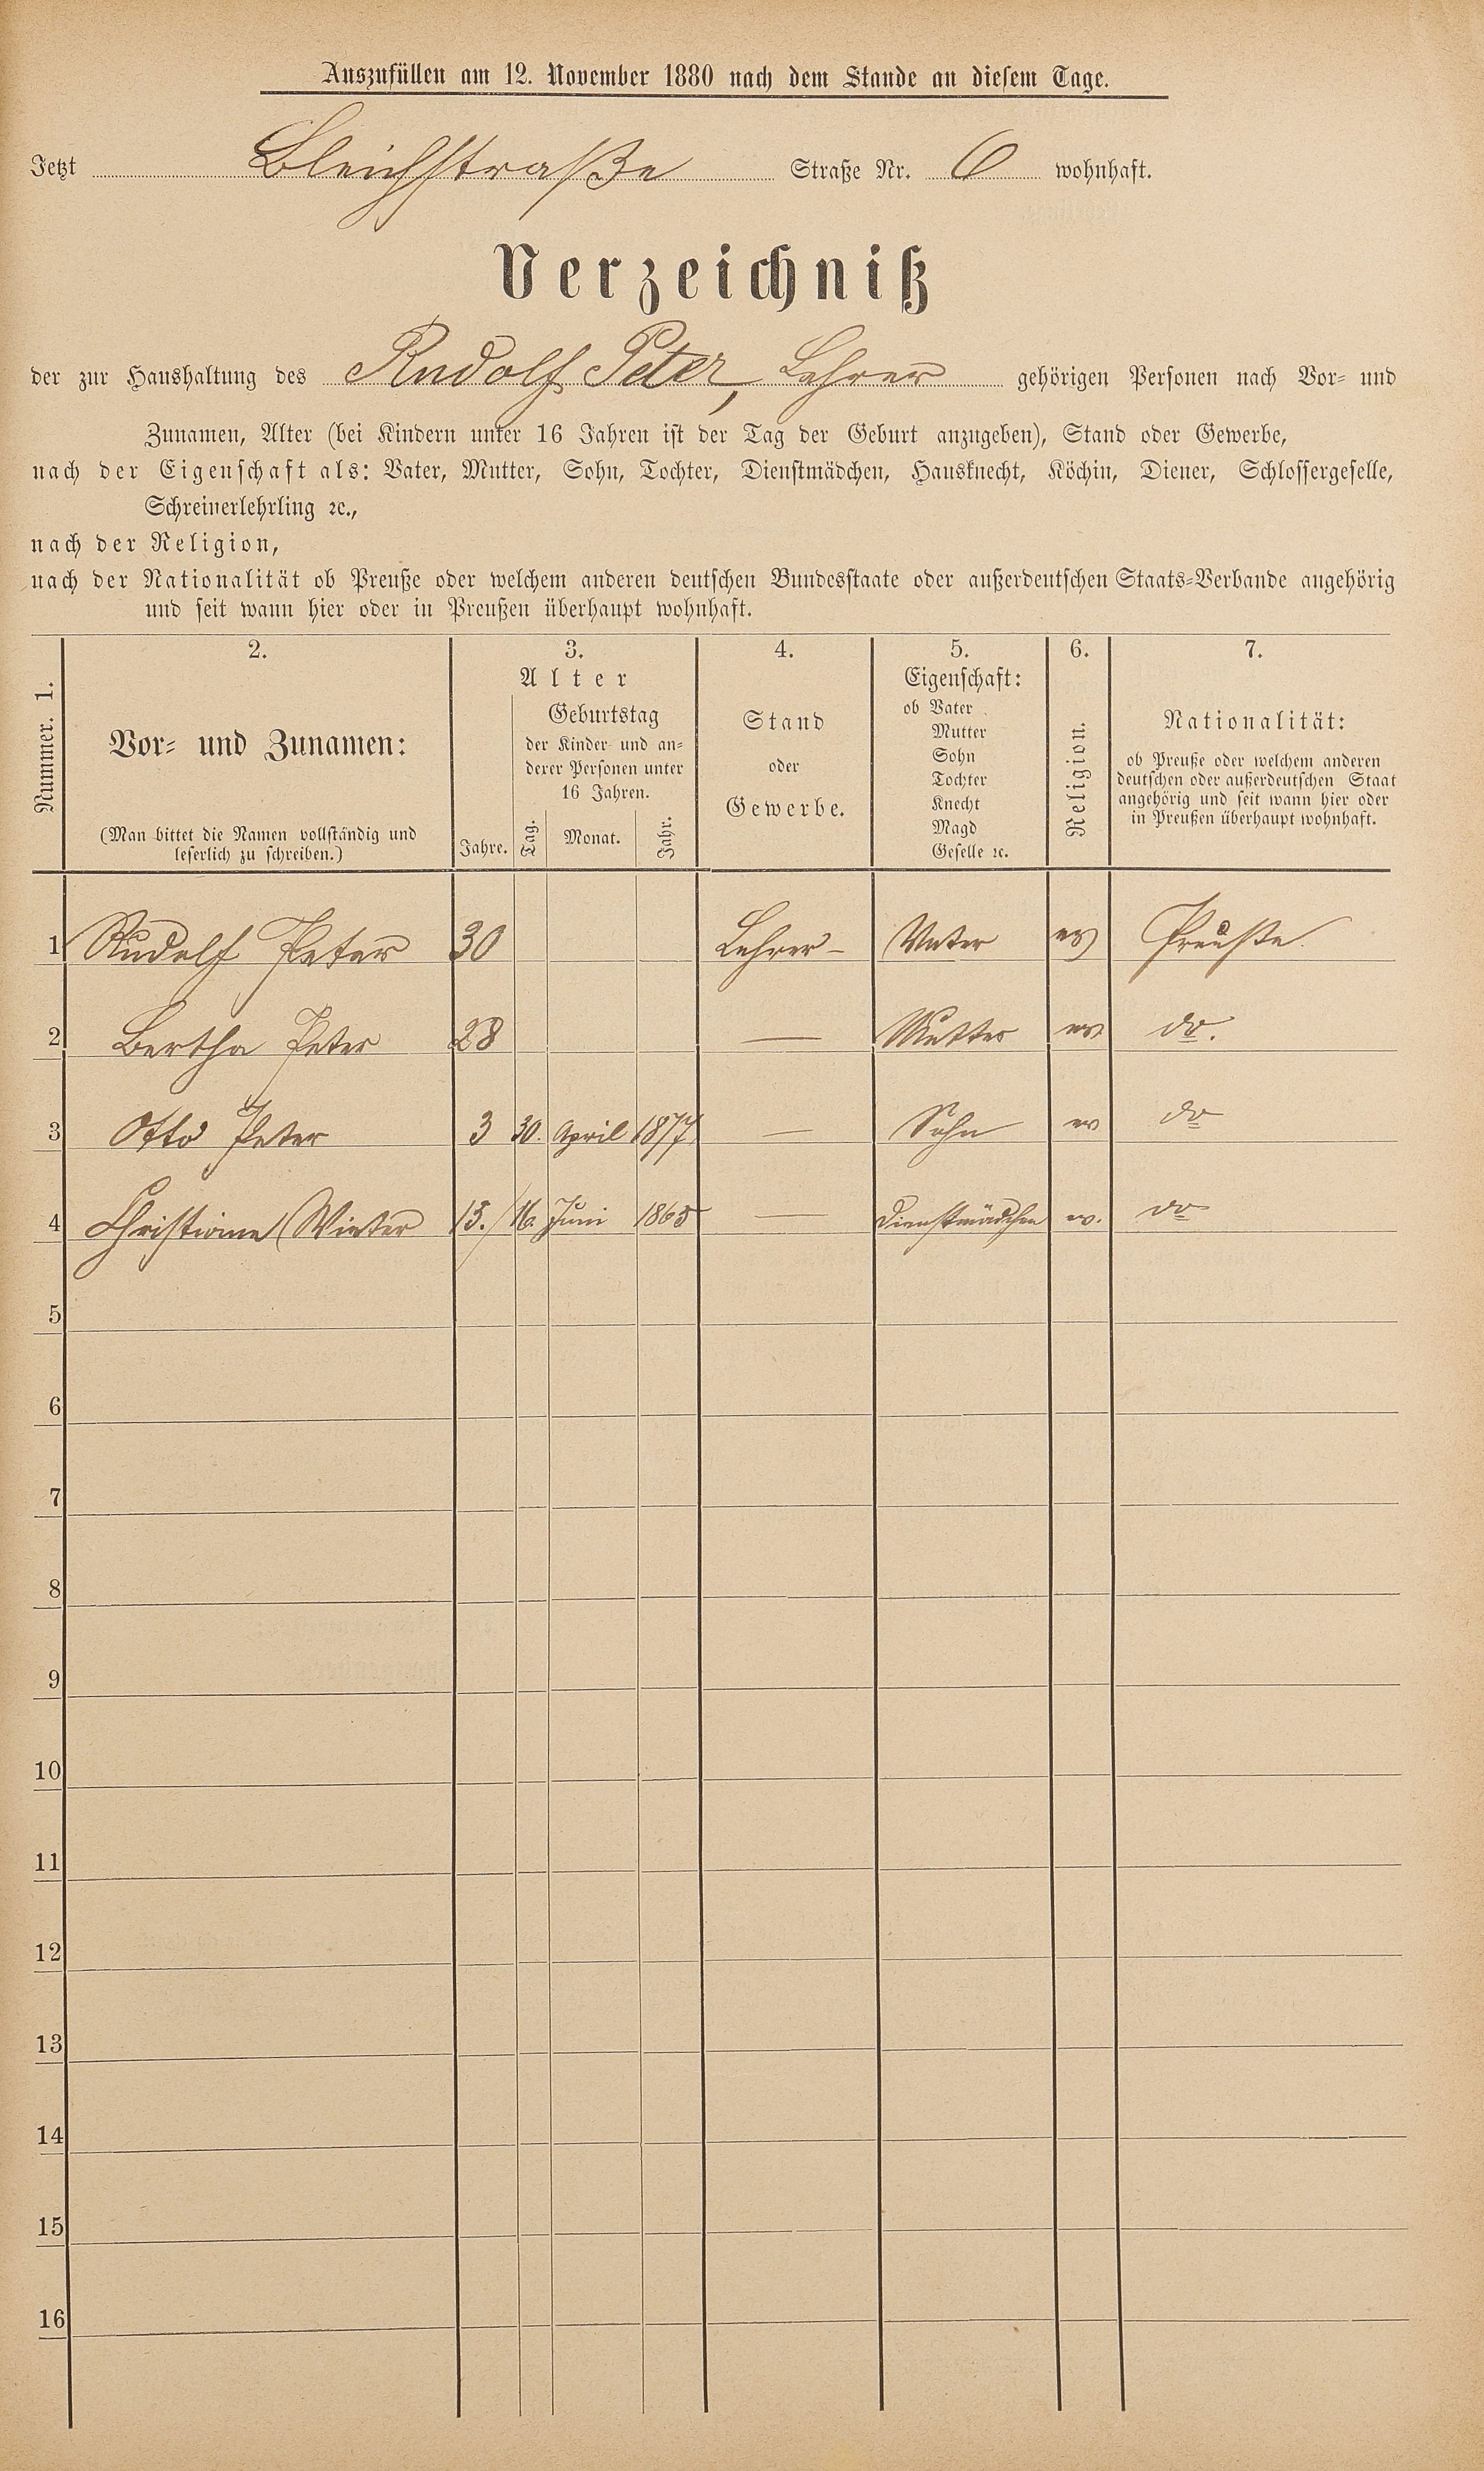 Auszufüllen am 12. November 1880 nach dem Stande an diesem Tage.
Jetzt Bleichstraße Straße Nr. 6 wohnhaft.
Verzeichniß
der zur Haushaltung des Rudolf Peter, Lehrer gehörigen Personen nach Vor- und
Zunamen, Alter (bei Kindern unter 16 Jahren ist der Tag der Geburt anzugeben), Stand oder Gewerbe,
nach der Eigenschaft als: Vater, Mutter, Sohn, Tochter, Dienstmädchen, Hausknecht, Köchin, Diener, Schlossergeselle,
Schreinerlehrling ꝛc.,
nach der Religion,
nach der Nationalität ob Preuße oder welchem anderen deutschen Bundesstaate oder außerdeutschen Staats-Verbande angehörig
und seit wann hier oder in Preußen überhaupt wohnhaft.
Nummer. 1.
2.
Vor- und Zunamen:
(Man bittet die Namen vollständig und
leserlich zu schreiben.)
3.
Alter
Jahre.
Geburtstag
der Kinder und an-
derer Personen unter
16 Jahren.
Tag. Monat. Jahr.
4.
Stand
oder
Gewerbe.
5.
Eigenschaft:
ob Vater
Mutter
Sohn
Tochter
Knecht
Magd
Geselle ꝛc.
6.
Religion.
7.
Nationalität:
ob Preuße oder welchem anderen
deutschen oder außerdeutschen Staat
angehörig und seit wann hier oder
in Preußen überhaupt wohnhaft.
1 Rudolf Peter 30 Lehrer – Vater ev Preuße.
2 Bertha Peter 28 — Mutter ev do.
3 Otto Peter 3 30. April 1877 — Sohn ev do
4 Christiane Winter 15. 16. Juni 1865 — Dienstmädchen ev. do
5
6
7
8
9
10
11
12
13
14
15
16